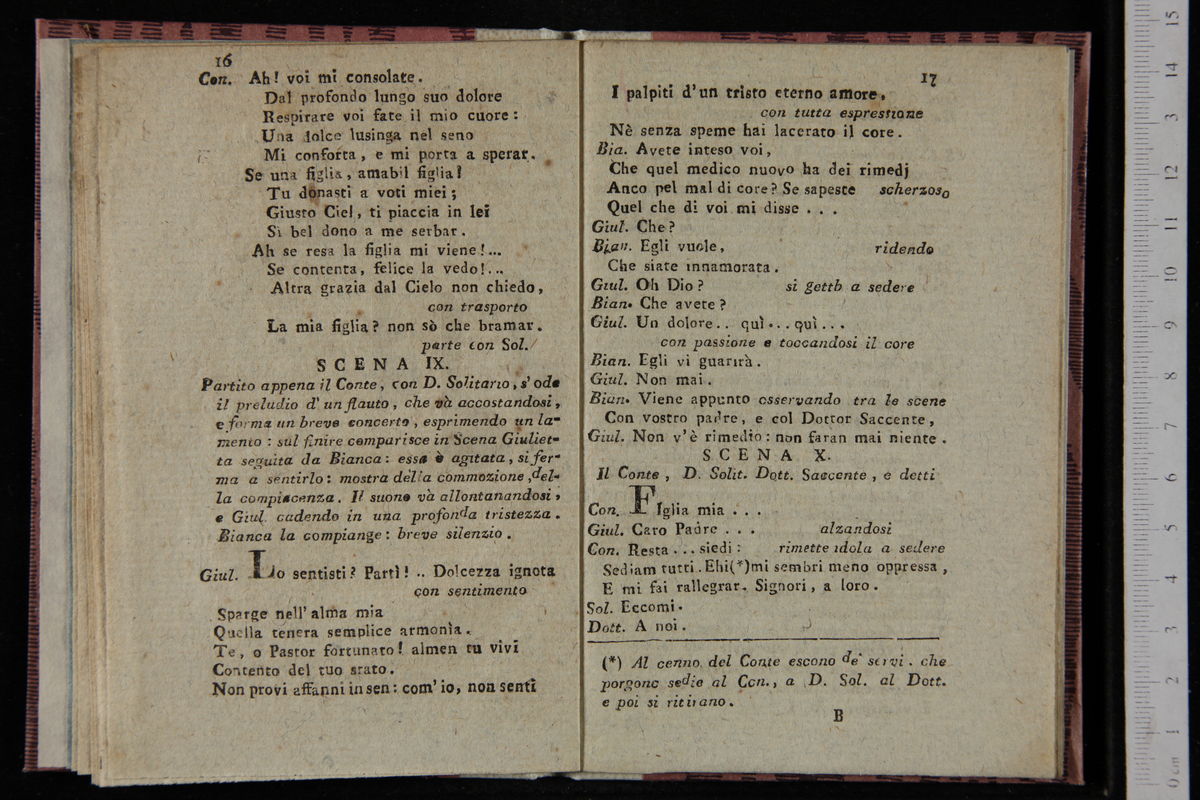 16
Con. Ah! voi mi consolate.
Dal profondo lungo suo dolore
Respirare voi fate il mio cuore:
Una dolce lusinga nel seno
Mi conforta, e mi porta a sperar.
Se una figlia, amabil figlia!
Tu donasti a voti miei;
Giusto Ciel, ti piaccia in lei
Sì bel dono a me serbar.
Ah se resa la figlia mi viene!...
Se contenta, felice la vedo!...
Altra grazia dal Cielo non chiedo,
con trasporto
La mia figlia? non sò che bramar.
parte con Sol.
SCENA IX.
Partito appena il Conte, con D. Solitario, s'ode
il preludio d'un flauto, che và accostandosi,
e forma un breve concerto, esprimendo un la-
mento: sul finire comparisce in Scena Giuliet-
ta seguita da Bianca: essa è agitata, si fer-
ma a sentirlo: mostra della commozione, del-
la compiacenza. Il suono và allontanandosi,
e Giul. cadendo in una profonda tristezza.
Bianca la compiange: breve silenzio.
Giul. Lo sentisti? Partì! .. Dolcezza ignota
con sentimento
Sparge nell' alma mia
Quella tenera semplice armonìa.
Te, o Pastor fortunato! almen tu vivi
Contento del tuo stato.
Non provi affanni in sen: com' io, non senti
17
I palpiti d'un tristo eterno amore,
con tutta espressione
Nè senza speme hai lacerato il core.
Bia. Avete inteso voi,
Che quel medico nuovo ha dei rimedj
Anco pel mal di core? Se sapeste scherzoso
Quel che di voi mi disse . . .
Giul. Che?
Bian. Egli vuole, ridendo
Che siate innamorata.
Giul. Oh Dio? si gettò a sedere
Bian. Che avete?
Giul. Un dolore.. quì...quì...
con passione e toccandosi il core
Bian. Egli vi guarirà.
Giul. Non mai.
Bian. Viene appunto osservando tra le scene
Con vostro padre, e col Dottor Saccente,
Giul. Non v'è rimedio: non faran mai niente.
SCENA X.
Il Conte, D. Solit. Dott. Saccente, e detti
Con. FIglia mia . . .
Giul. Caro Padre . . . alzandosi
Con. Resta . .. siedi: rimettendola a sedere
Sediam tutti. Ehi(*)mi sembri meno oppressa,
E mi fai rallegrar. Signori, a loro.
Sol. Eccomi.
Dott. A noi.
(*) Al cenno del Conte escono de' servi. che
porgono sedie al Con., a D. Sol. al Dott.
e poi si ritirano.
B
15
14
3
12
11
10
9
8
7
6
5
4
3
2
1
0 cm